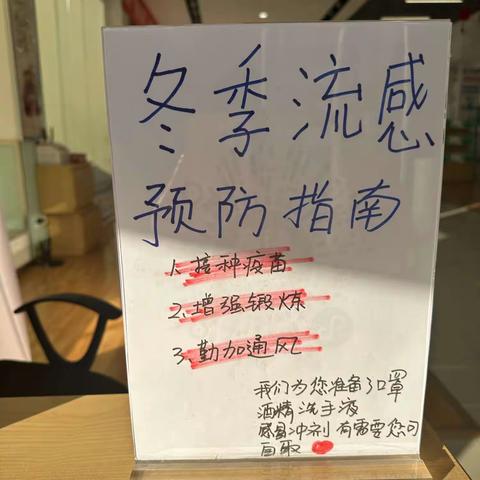 冬季流感
预防指南
1、接种疫苗
2、增强锻炼
3、勤加通风
我们为您准备了口罩
酒精洗手液
感冒冲剂 有需要您可
自取